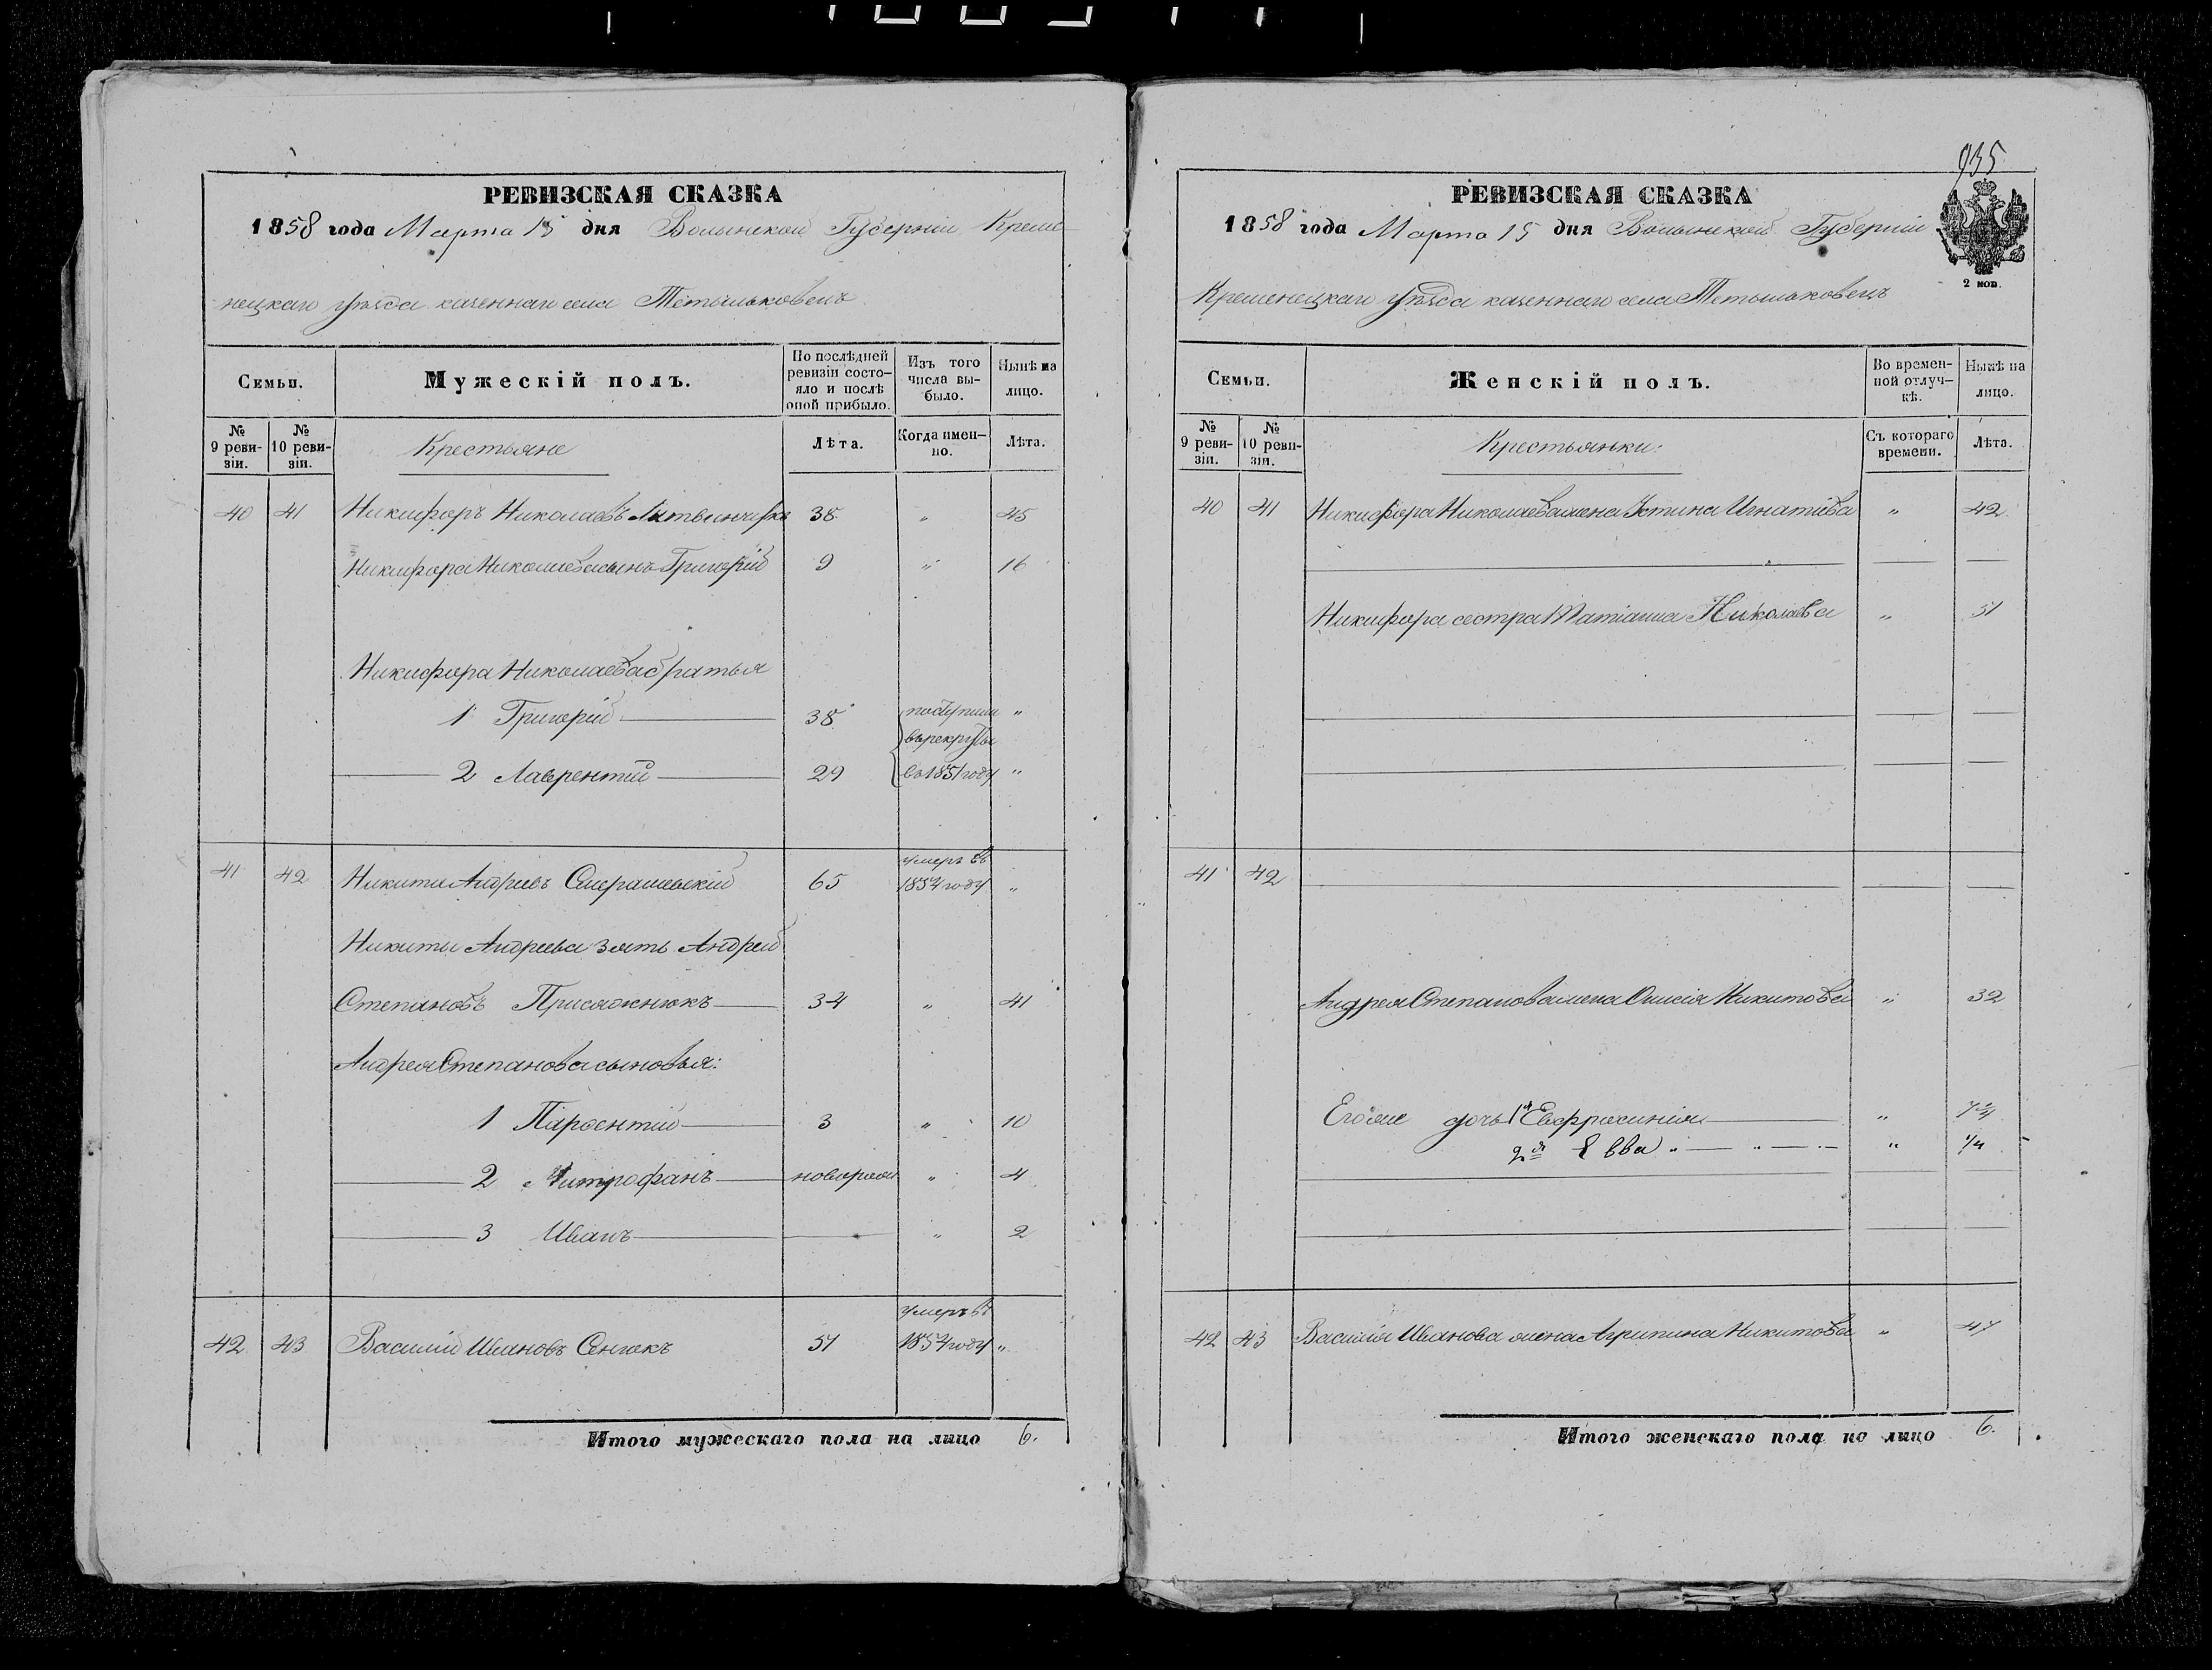 РЕВИЗСКАЯ СКАЗКА
1858 года Марта 15 дня Волынской Губерніи Креме-
нецкаго уѣзда казеннаго села Тетыльковецъ
Семьи.
Мужескій полъ.
По послѣдней ревизіи состо-яло и послѣ оной прибыло.
Изъ того числа вы-было.
Нынѣ на лицо.
№ 9 реви-зіи.
№ 10 реви-зіи.
Крестьяне
Лѣта.
Когда имен-но.
Лѣта.
40 41 Никифоръ Николаевъ 38 " 45
Никифора Николаева сынъ Григорій 9 " 16
Никифора Николаева братья
1 Григорій 38 поступили "
въ рекруты
2 Лаврентій 29 въ 1851 году "
умеръ въ
41 42 Никита Андреевъ 65 1854 году "
Никиты Андреева зять Андрей
Степановъ Присяжнюкъ 34 " 41
Андрея Степанова сыновья:
1 Парѳентій 3 " 10
2 Митрофанъ новорож " 4
3 Иванъ " 2
умеръ въ
42 43 Василій Ивановъ Сенюкъ 51 1854 году "
Итого мужескаго пола на лицо 6.
935
РЕВИЗСКАЯ СКАЗКА
1858 года Марта 15 дня Волынской Губерніи
2 коп.
Кременецкаго уѣзда казеннаго села Тетыльковецъ
Семьи.
Женскій полъ.
Во времен-ной отлуч-кѣ.
Нынѣ на лицо.
№ 9 реви-зіи.
№ 10 реви-зіи.
Крестьянки:
Съ котораго времени.
Лѣта.
40 41 Никифора Николаева жена Устина Игнатіева " 42
Никифора сестра Матіанна Николаева " 51
41 42
Андрея Степанова жена Онисія Никитова " 32
Его же дочь 1я Евфросинія "
2я Евва " 1/4
42 43 Василія Иванова жена Агрипина Никитова " 47
Итого женскаго пола на лицо 6.